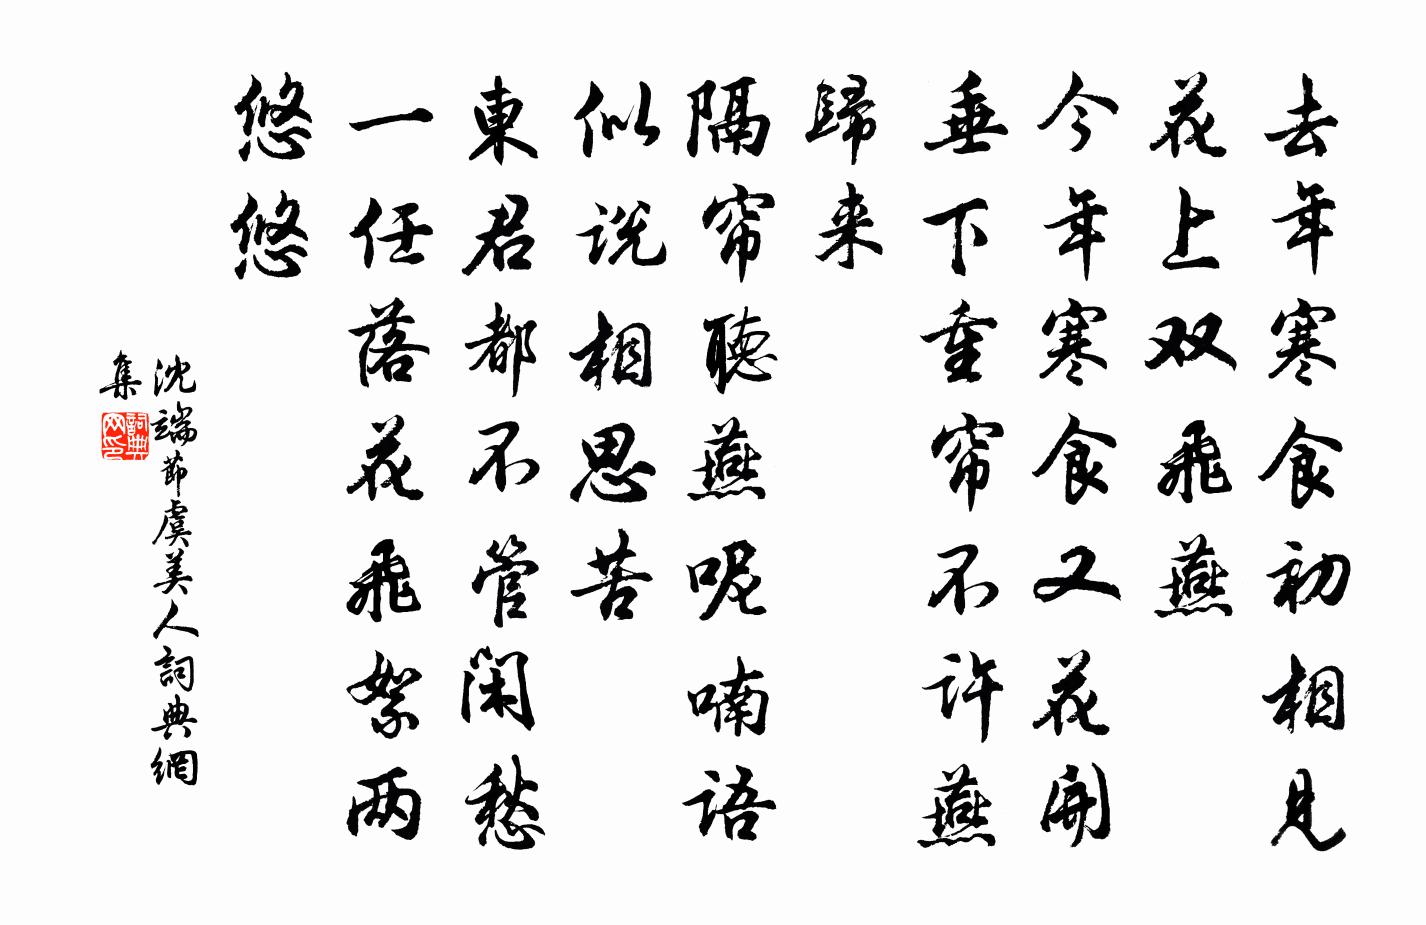 去年寒食初相見
花上双飛燕
今年寒食又花開
垂下重帘不許燕
歸来
隔帘聽燕呢喃語
似说相思苦
東君都不管閑愁
一任落花飛絮两
悠悠
沈端節虞美人詞典網
集
詞典
网印